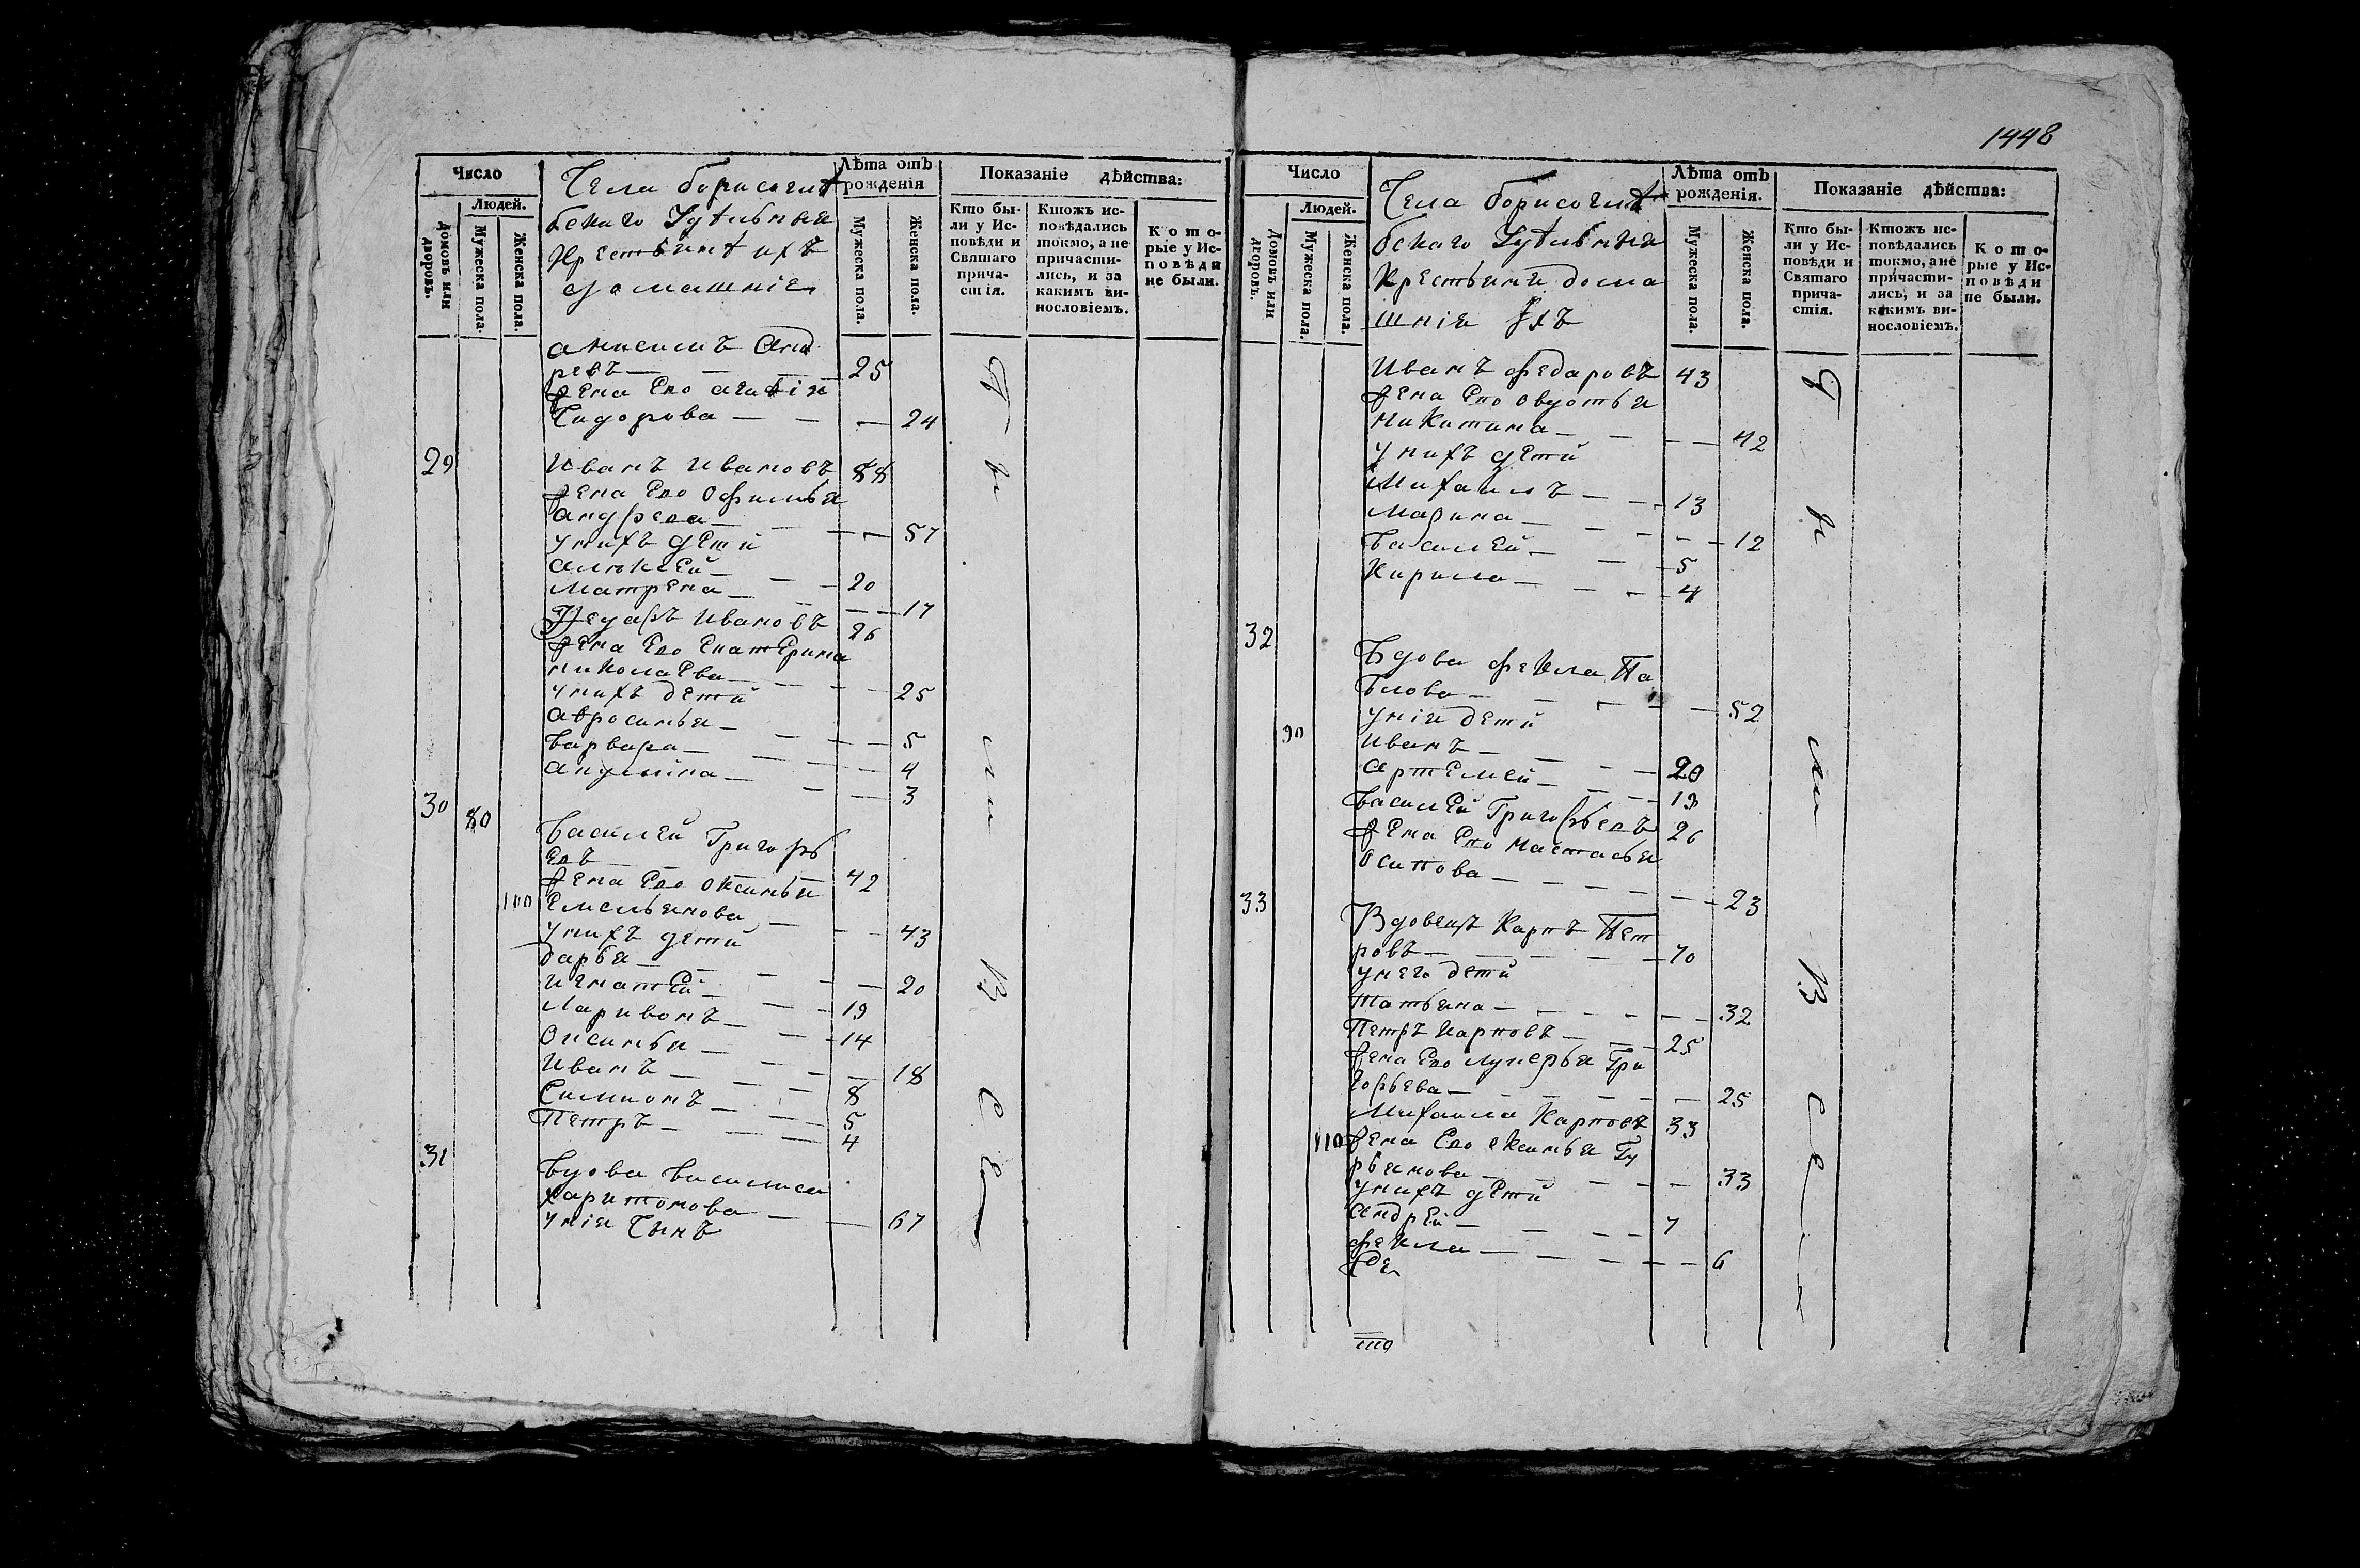 1448
Число
Людей.
Домовъ или дворовъ.
Мужеска пола.
Женска пола.
Села борисоглѣ
бскаго
крестьянѣ ихъ
домашніе
Лѣта отъ рожденія
Мужеска пола.
Женска пола.
Показаніе дѣйства:
Кто бы-
ли у Ис-
повѣди и
Святаго
прича-
стія.
Ктожъ ис-
повѣдались
токмо, а не
причасти-
лись, и за
какимъ ви-
нословіемъ.
Кото-
рые у Ис-
повѣди
не были.
анисимъ Анд
ревъ — 25
жена Ево агафія
Сидорова — 24
29 Иванъ Ивановъ 88
жена Ево Офимья
андреева — 57
у нихъ дети
алѣксей — 20
Матрена — 17
Федаръ Ивановъ 26
жена Ево Екатерина
николаЕва — 25
у нихъ дети
авросинья — 5
варвара — 4
акулина — 3
30 80 василей Григорь
евъ — 42
жена Ево оксинья
100 Емельянова — 43
у нихъ дети
дарья — 20
игнатей — 19
Ларивонъ — 14
Оксинья — 18
Иванъ — 8
Симионъ — 5
Петръ — 4
31 вдова василиса
харитонова — 67
у нія Сынъ
Число
Людей.
Домовъ или дворовъ.
Мужеска пола.
Женска пола.
Села борисоглѣ
бскаго
крестьяни дома
шнія ихъ
Лѣта отъ рожденія.
Мужеска пола.
Женска пола.
Показаніе дѣйства:
Кто бы-
ли у Ис-
повѣди и
Святаго
прича-
стія.
Ктожъ ис-
повѣдались
токмо, а не
причасти-
лись, и за
какимъ ви-
нословіемъ.
Кото-
рые у Ис-
повѣди
не были.
Иванъ федаровъ 43
жена Ево овдотья
никитина — 42
у нихъ дети
Михаилъ — 13
Марина — 12
василей — 5
Кирила — 4
32 вдова фекла Па
влова — 52
у нія дети
90 Иванъ — 20
артемей — 19
василей Григорьевъ 26
жена Ево настасья
осипова — 23
33 Вдовецъ Карпъ Пет
ровъ — 70
у него дети
татьяна — 32
Петръ Карповъ — 25
жена Ево лукерья Гри
горьева — 25
Михаила Карповъ 33
110 жена Ево оксинья Гу
рьянова — 33
у нихъ дети
андрей — 7
фекла — 6